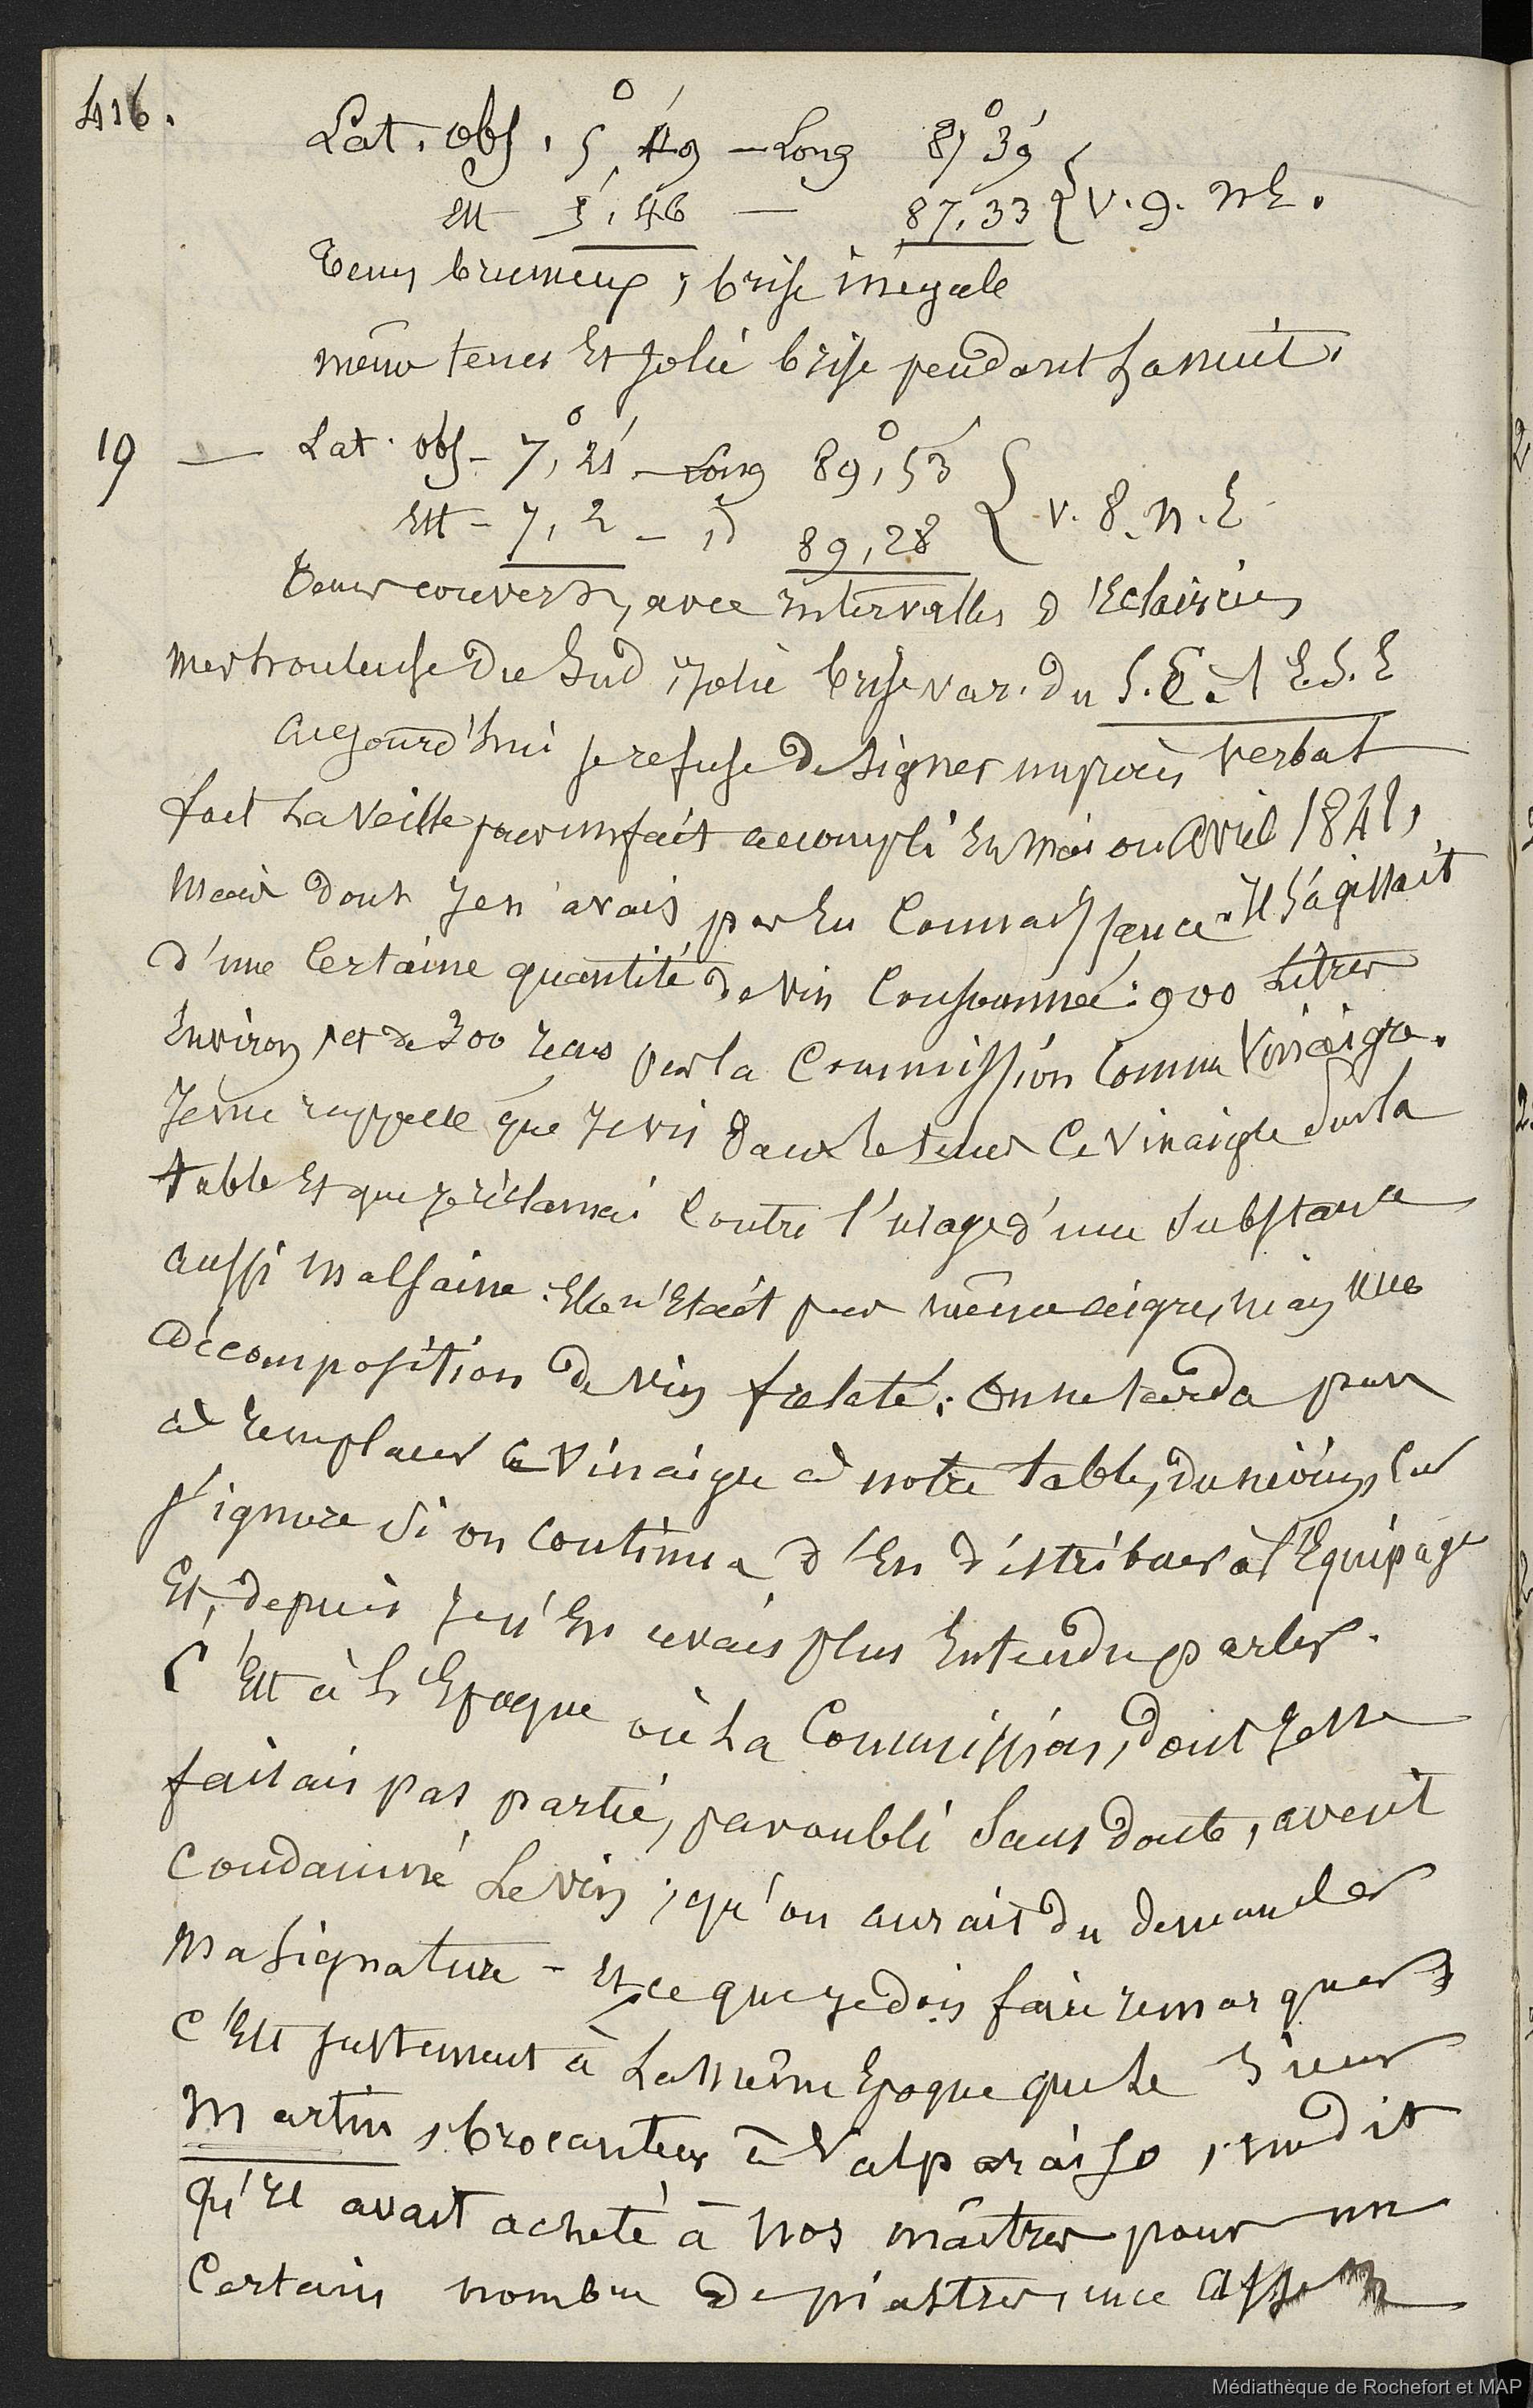 416.
Lat. obs. 5° 49' — Long 87° 39'
Est 5, 46 — 87, 33 { V. 9. NE.
Tems brumeux, brise inégale
même tems Et Jolie brise pendant La nuit.
19 — Lat. obs - 7°, 21' — Long 89°, 53'
Est - 7, 2 — id 89, 28 { V. 8. N. E
Tems couvert, avec intervalles d'Eclaircies
mer houleuse Du Sud, Jolie brise var. Du S.E à l'E.S.E
Aujourd'hui je refuse De signer un procès verbal
fait La Veille pour un fait accompli En Mai ou Avril 1841,
Mais dont Je n'avais pas Eu Connaissance. Il S'agissait
d'une Certaine quantité de vin Consommée: 900 Litres
Environ, et de 300 par la Commission Comme Vinaigre.
Je me rappelle que Je vis Dans le tems Ce Vinaigre Sur la
table Et que je réclamai Contre l'usage d'une Substance
aussi malsaine. Elle n'Etait pas même aigre, mais une
décomposition De vin frelaté; On ne tarda pas
à remplacer Ce Vinaigre à notre table, du moins, Car
J'ignore Si on Continua d'En distribuer à l'Equipage
Et, depuis Je n'En avais plus Entendu parler.
C'Est à L'Epoque où La Commission, dont Je ne
faisais pas partie, par oubli Sans doute, avait
Condamné Le vin, qu'on aurait du demander
Ma Signature - Et ce que je dois faire remarquer
C'Est justement à La même Epoque que Le Sieur
Martin, brocanteur à Valparaiso, me dit
qu'il avait acheté à Nos maîtres pour un
Certain nombre de piastres, une assez